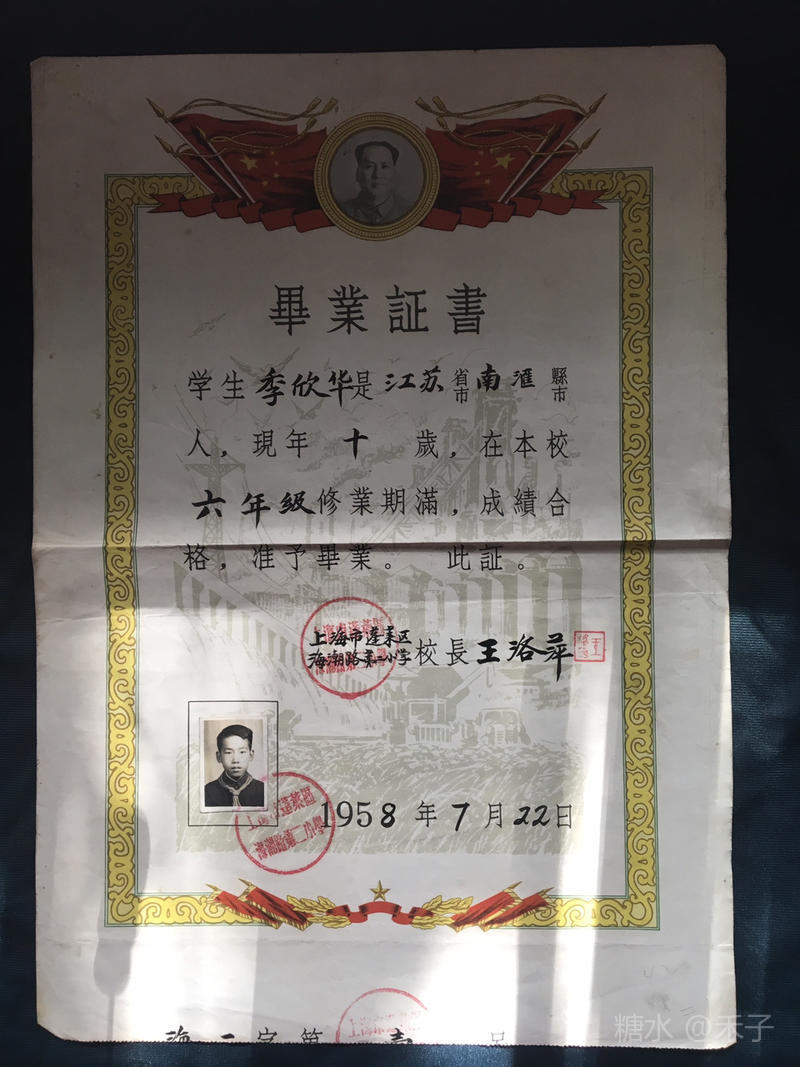 畢業証書
学生季欣华是江苏省市南滙縣市
人，現年十歲，在本校
六年級修業期滿，成績合
格，准予畢業。此証。
上海市蓬莱区
海潮路第二小学校長王洛萍
1958年7月22日
海二字第
糖水 @禾子